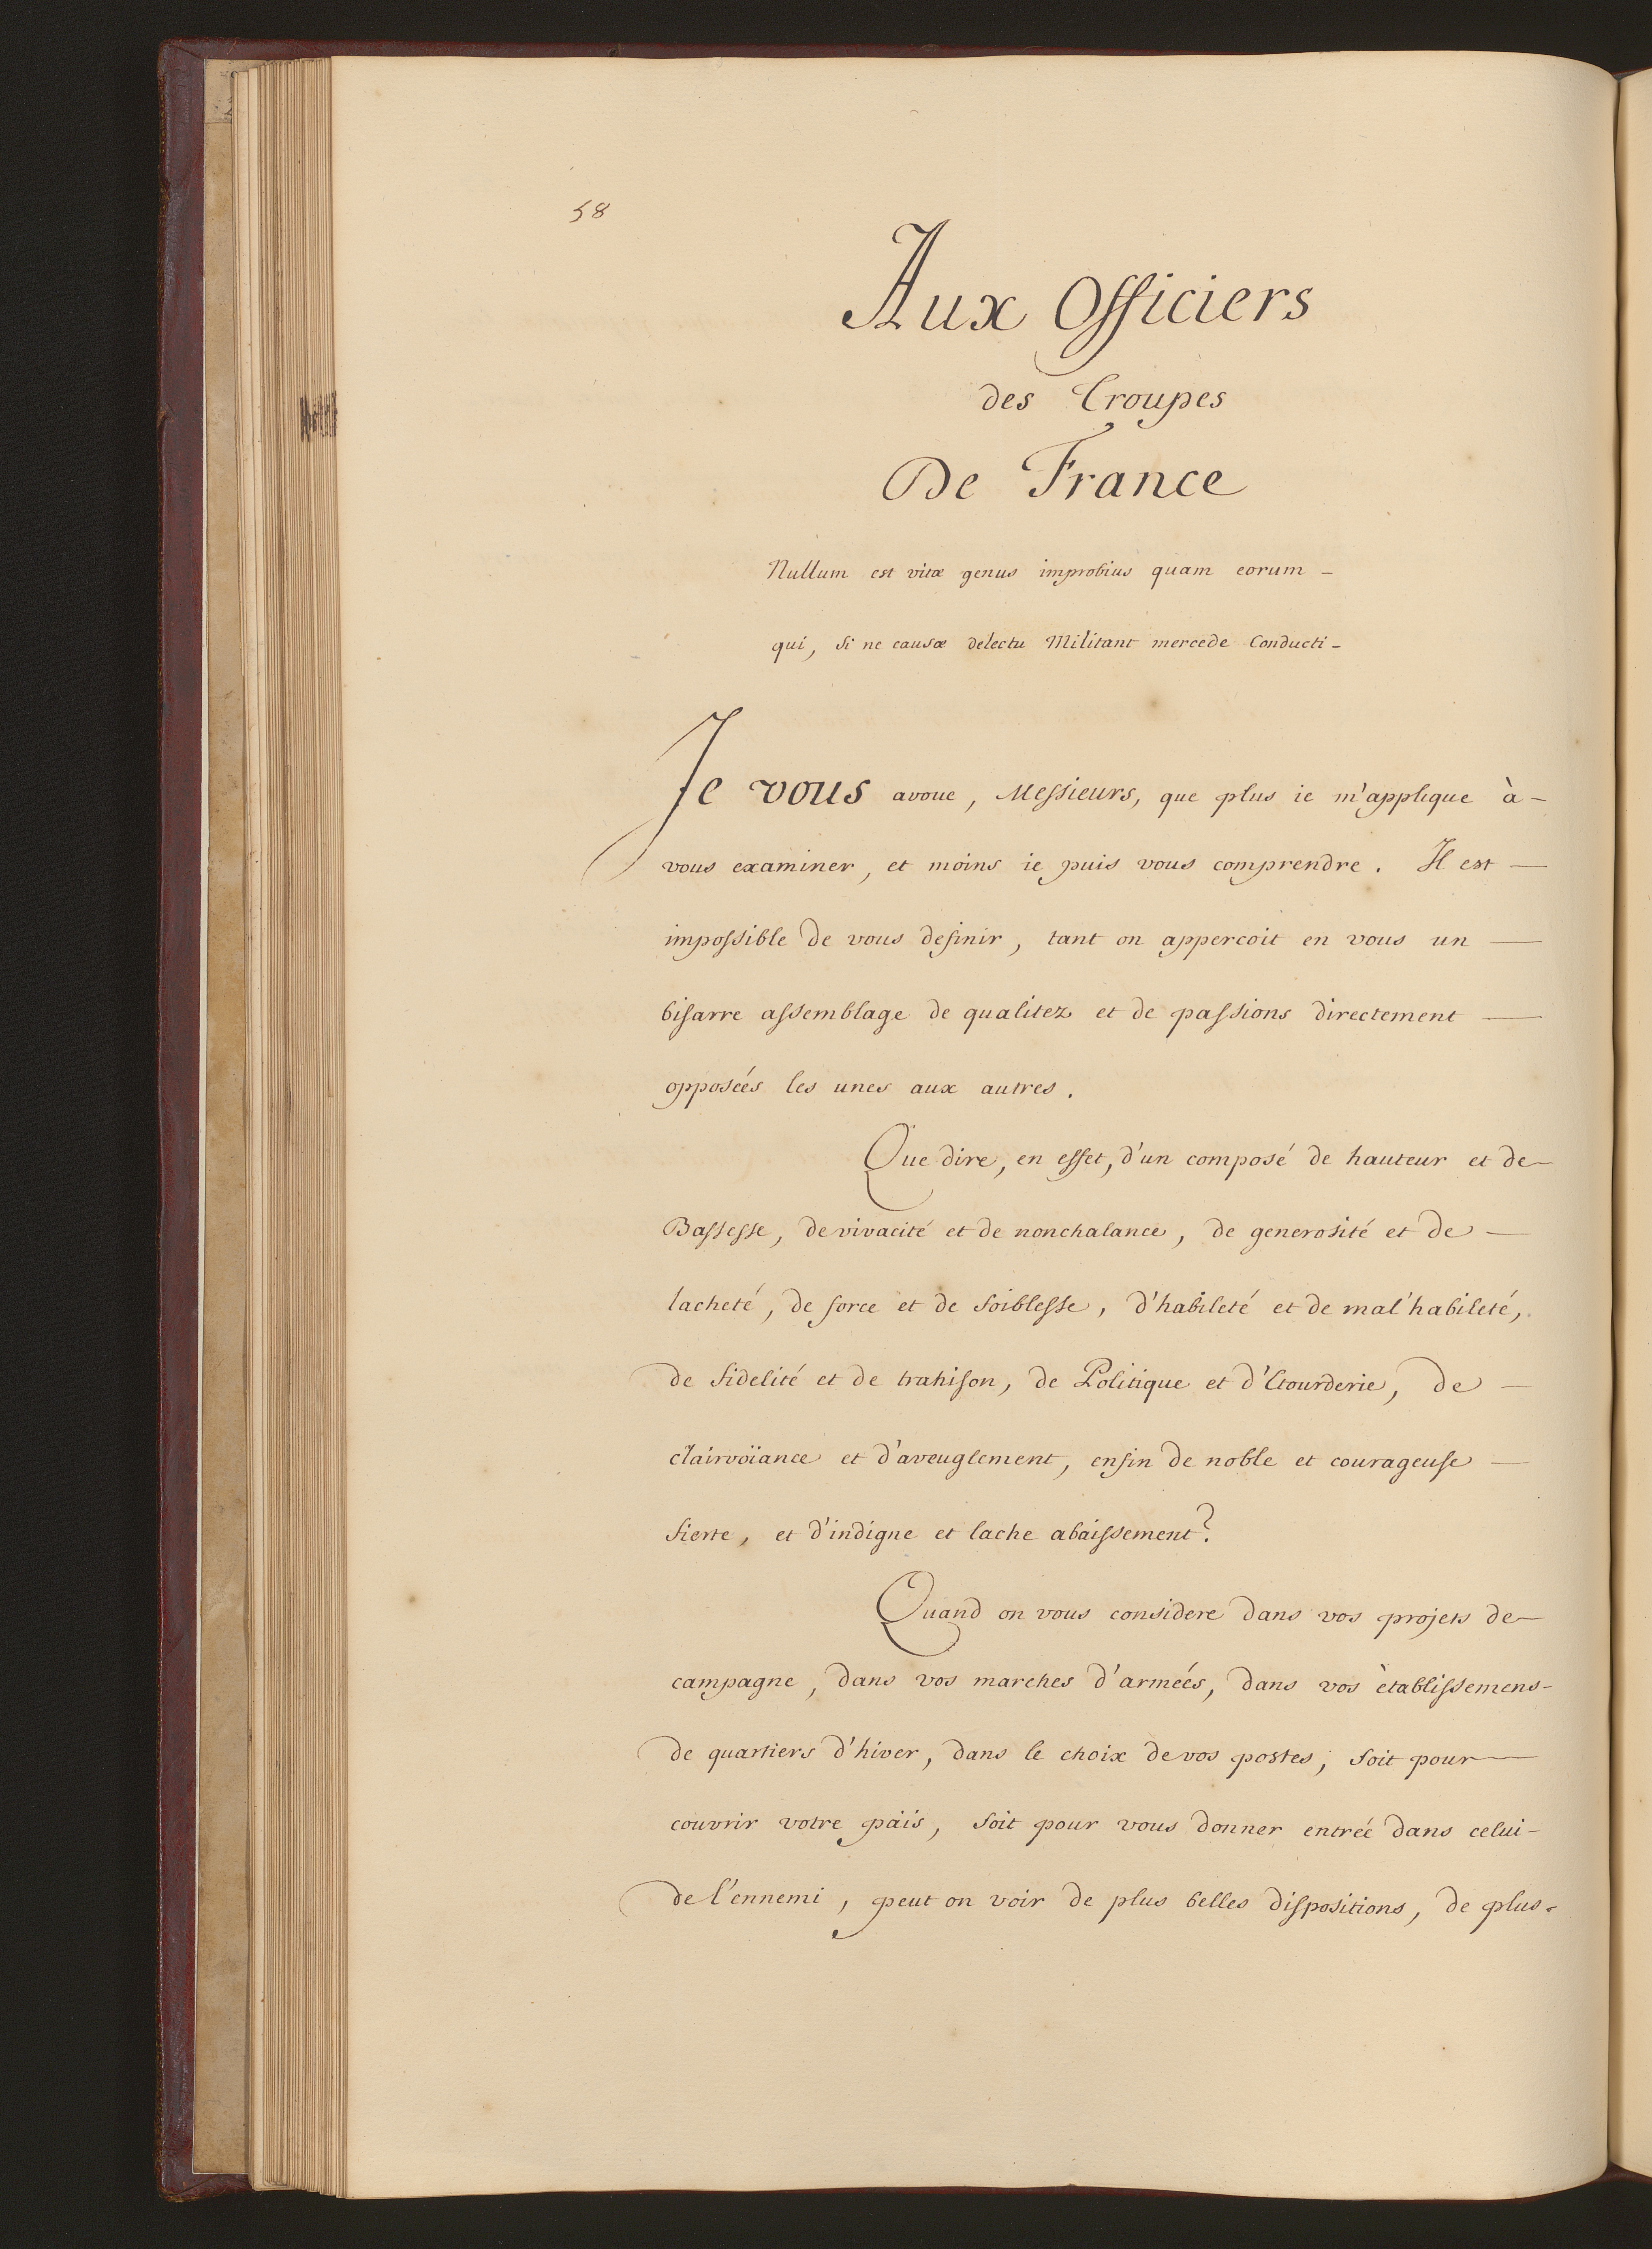 58
Aux Officiers
des Troupes
De France
Nullum est vitæ genus improbius quam eorum -
qui, si ne causæ delectu Militant mercede Conducti -
Je vous avoue, Messieurs, que plus ie m'applique à -
vous examiner, et moins ie puis vous comprendre. Il est —
impossible de vous definir, tant on appercoit en vous un —
bisarre assemblage de qualitez et de passions directement —
opposeés les unes aux autres.
Que dire, en effet, d'un composé de hauteur et de —
Bassesse, de vivacité et de nonchalance, de generosité et de —
lacheté, de force et de foiblesse, d'habileté et de mal'habileté,
de fidelité et de trahison, de Politique et d'Etourderie, de —
clairvoïance et d'aveuglement, enfin de noble et courageuse —
fierte, et d'indigne et lache abaissement?
Quand on vous considere dans vos projets de —
campagne, dans vos marches d'armeés, dans vos ètablissemens -
de quartiers d'hiver, dans le choix de vos postes, soit pour —
couvrir votre païs, soit pour vous donner entreé dans celui -
de l'ennemi, peut on voir de plus belles dispositions, de plus -